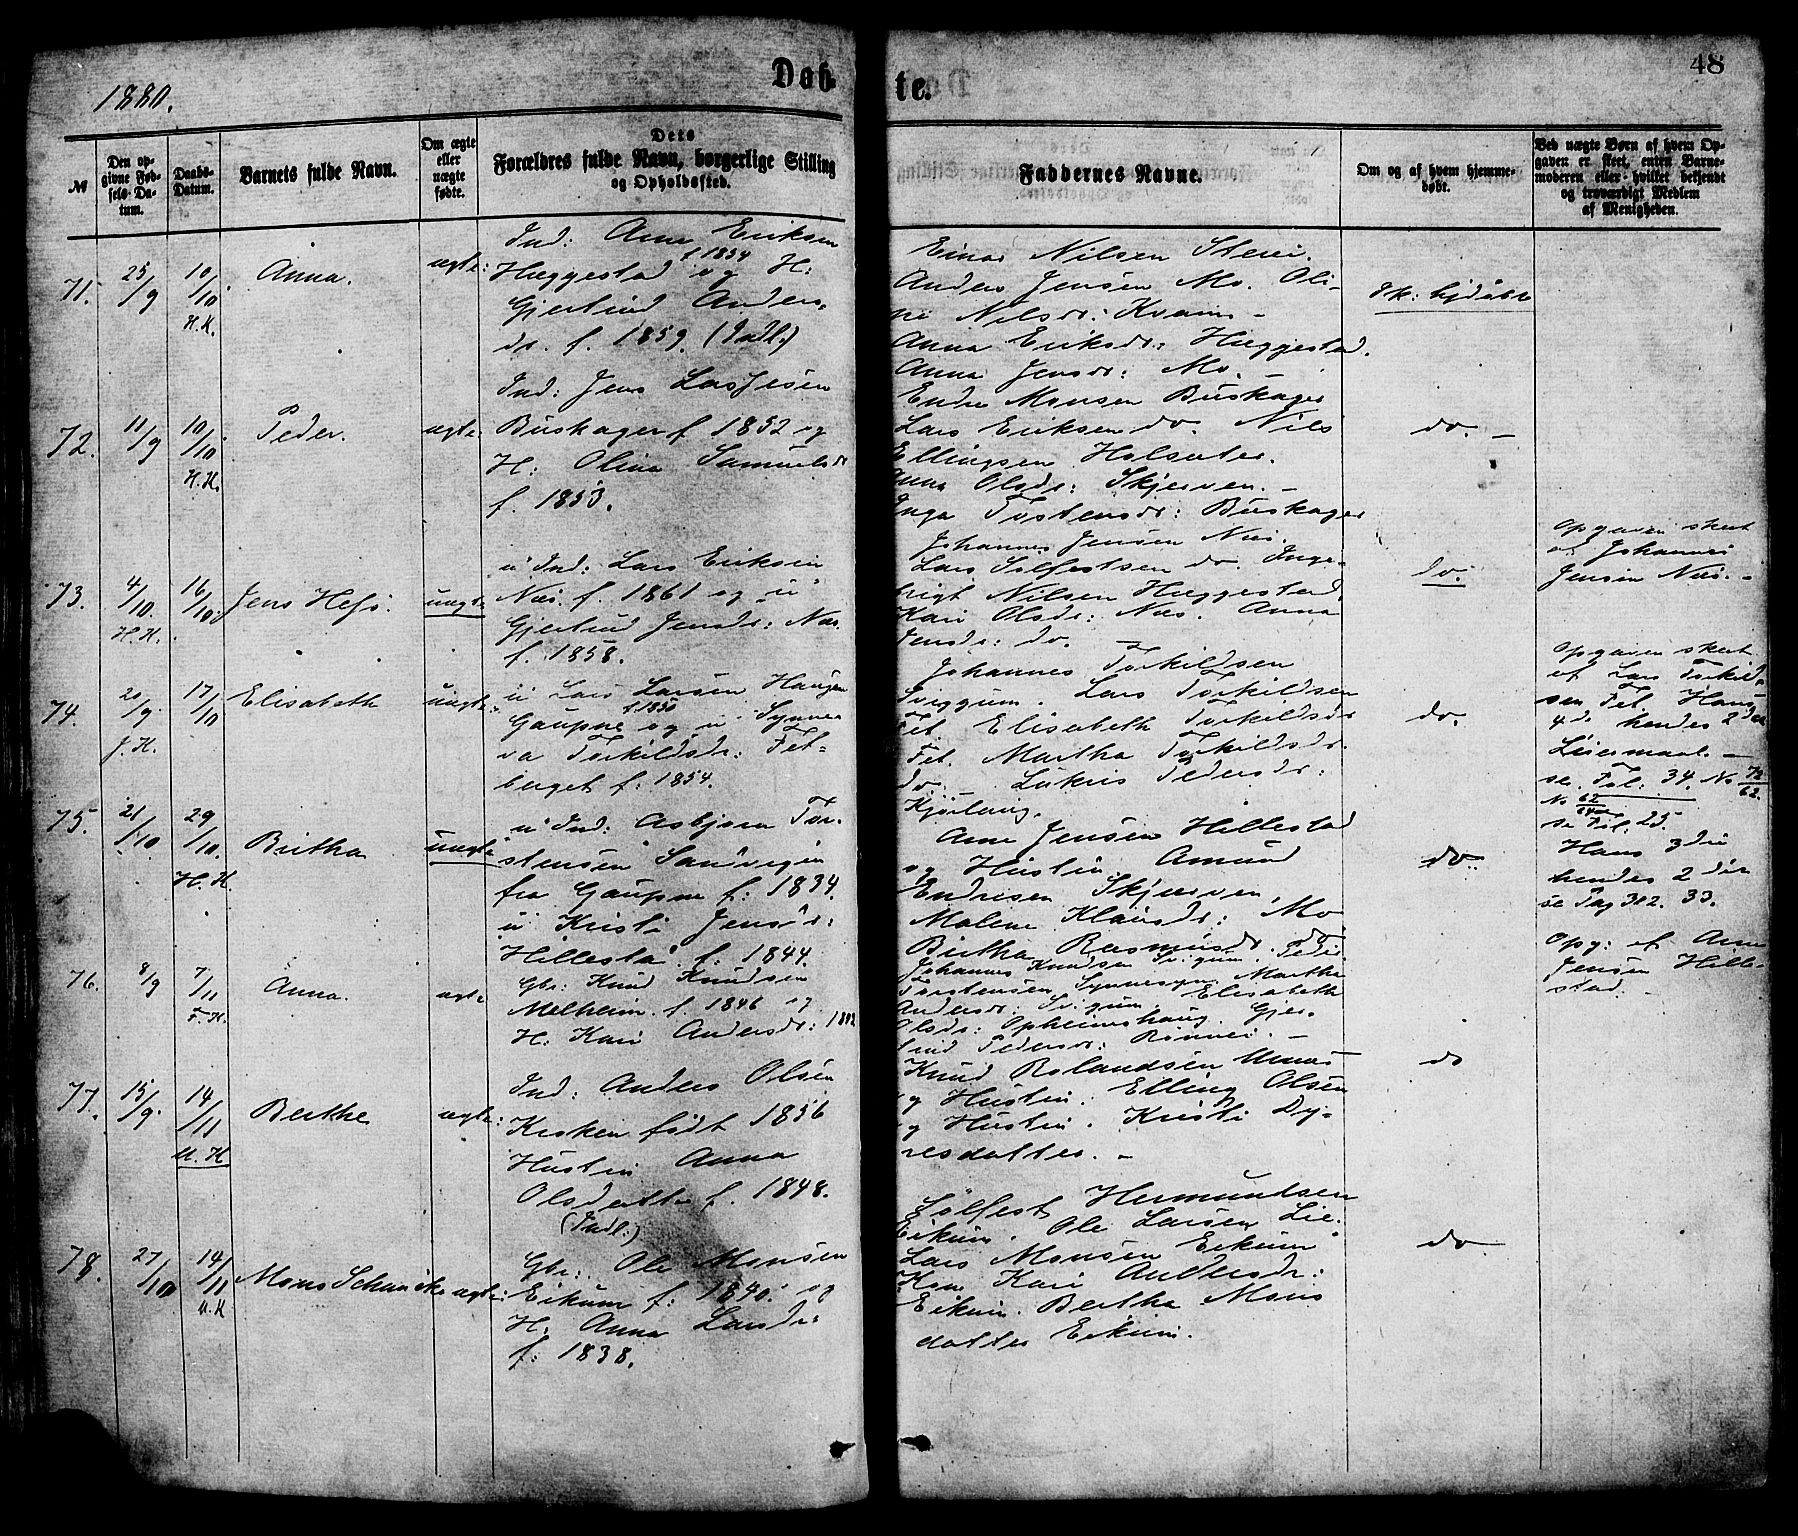 1880.
Døb
te.
48
№
Den op-
givne Fød-
sels-Da-
tum.
Daabs-
Datum.
Barnets fulde Navn.
Om ægte
eller
uægte
født.
Dets
Forældres fulde Navn, borgerlige Stilling
og Opholdssted.
Faddernes Navne.
Om og af hvem hjemme-
døbt.
Ved uægte Børn af hvem Op-
gaven er skeet, enten Barne-
moderen eller hvilket bekjendt
og troværdigt Medlem
af Menigheden.
71.
25/9
10/10
H. K.
Anna.
ægte:
Ind: Arne Eriksen
f 1854
Hæggestad og H:
Gjertrud Anders-
dr. f. 1859. (Indl.)
Einar Nilsen Steiei.
Anders Jensen Mo. Oli-
ne Nilsdr: Kvam -
Anna Eriksdr: Hæggestad.
Anna Jensdr: Mo. -
Sk: hjdøbt
72.
11/9
10/10
H. K.
Peder.
ægte.
Ind: Jens Lassesen
Buskager f 1852 og
H: Olina Samuelsdr
f. 1853.
Endre Monsen Buskager
Lars Eriksen do. Nils
Ellingsen Holsæter.
Anna Olsdr: Skjerven. -
Inga Tostensdr: Buskager
do. -
73.
4/10
H. K.
16/10.
Jens
uægte
u Ind: Lars Eriksen
Næs. f. 1861 og u
Gjertrud Jensdr: Næs.
f. 1858.
Johannes Jensen Næs.
Lars Sølfestsen do. Inge-
brigt Nilsen Hæggestad.
Kari Olsdr: Næs. Anna
Jensdr: do.
do.
Opgaven skeet
af Johannes
Jensen Næs. -
74.
20/9.
J. K.
17/10
Elisabeth
uægte
u Lars Larsen Haugen
f 1850
Gaupne og u Synne-
va Torkildsdr: Fet-
berget f: 1854.
Johannes Torkildsen
Sveggum. Lars Torkildsen
Fet. Elisabeth Torkildsdr
Fet. Martha Torkildsdr.
do. Lukris Pedersdr:
Kjørlaug.
do.
Opgaven skeet
af Lars Torkild-
sen Fet. Hans
4de hendes 2det
Leiermaal. -
se Fol: 34. No 72/62.
75.
21/10
29/10.
H. K.
Britha
uægte
u Ind: Asbjørn Tor-
stensen Sandvigen
fra Gaupne f: 1834.
u Kristi Jensdr:
Hillestad. f. 1844.
Arne Jensen Hillestad
og Hustru Amund
Endresen Skjerven.
Malene Klausdr: Mo
Britha Rasmusdr. do.
do.
se Fol. 25.
Hans 3die
hendes 2 die
se Pag 302. 33.
Opg: af Arne
Jensen Hille-
stad.
76.
8/9
7/11
F. K.
Anna.
ægte
Gbr: Knud Knudsen
Melheim. f. 1846 og
H: Kari Andersdr: 1842
Johannes Knudsen Svigum. Peder
Torstensen Synnesgn. Martha
Andersdr. Svigum. Elisabeth
Olsdr: Opheimshaug. Gjer-
trud Pedersdr: Rønnei. -
do
77.
15/9.
14/11
U. K
Berthe
ægte:
Ind: Anders Olsen
Kroken født 1856
Hustru Anna
Olsdatter f. 1848.
(Indl:)
Knud Rolandsen Urnæs
og Hustru. Elling Olsen
og Hustru. Kristi Dy-
resdatter. -
78.
27/10
14/11
U. K
Mons Schanche
ægte:
Gbr: Ole Monsen
Eikum f: 1840. og
H: Anna Larsdr:
f: 1838.
Sølfest Hermundsen
Eikum. Ole Larsen Lie.
Lars Monsen Eikum
Kone Kari Andersdr:
Eikum. Bertha Mons
datter Eikum.
do.